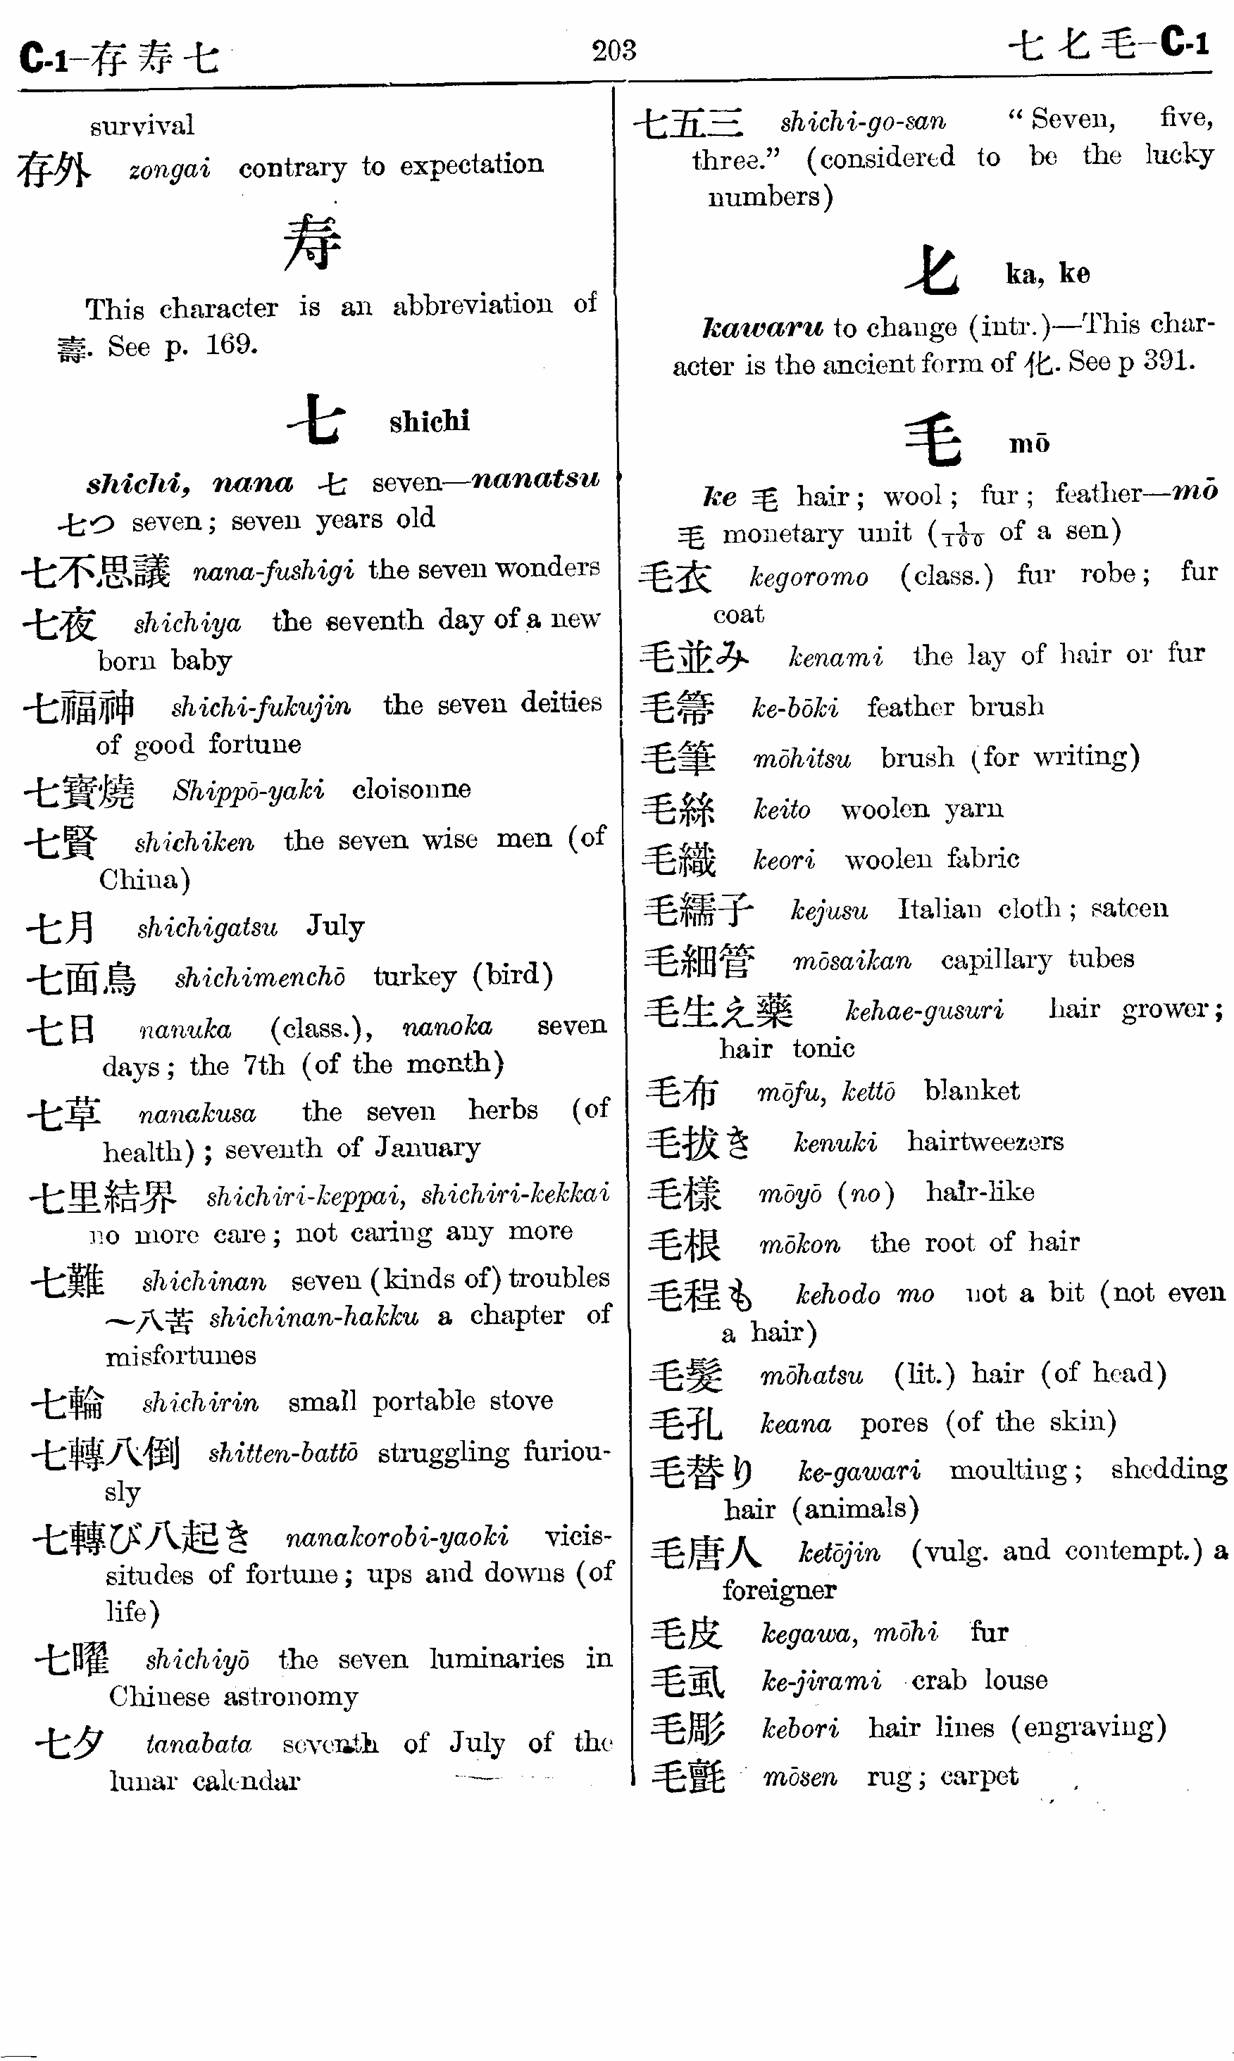 C-1–存 寿 七
203
七 𠤎 毛–C-1
survival
存外 zongai contrary to expectation
寿
This character is an abbreviation of
壽. See p. 169.
七 shichi
shichi, nana 七 seven—nanatsu
七つ seven; seven years old
七不思議 nana-fushigi the seven wonders
七夜 shichiya the seventh day of a new
born baby
七福神 shichi-fukujin the seven deities
of good fortune
七寶燒 Shippō-yaki cloisonne
七賢 shichiken the seven wise men (of
China)
七月 shichigatsu July
七面鳥 shichimenchō turkey (bird)
七日 nanuka (class.), nanoka seven
days; the 7th (of the month)
七草 nanakusa the seven herbs (of
health); seventh of January
七里結界 shichiri-keppai, shichiri-kekkai
no more care; not caring any more
七難 shichinan seven (kinds of) troubles
〜八苦 shichinan-hakku a chapter of
misfortunes
七輪 shichirin small portable stove
七轉八倒 shitten-battō struggling furiou-
sly
七轉び八起き nanakorobi-yaoki vicis-
situdes of fortune; ups and downs (of
life)
七曜 shichiyō the seven luminaries in
Chinese astronomy
七夕 tanabata seventh of July of the
lunar calendar
七五三 shichi-go-san “Seven, five,
three.” (considered to be the lucky
numbers)
𠤎 ka, ke
kawaru to change (intr.)—This char-
acter is the ancient form of 化. See p 391.
毛 mō
ke 毛 hair; wool; fur; feather—mō
毛 monetary unit (1/100 of a sen)
毛衣 kegoromo (class.) fur robe; fur
coat
毛並み kenami the lay of hair or fur
毛箒 ke-bōki feather brush
毛筆 mōhitsu brush (for writing)
毛絲 keito woolen yarn
毛織 keori woolen fabric
毛繻子 kejusu Italian cloth; sateen
毛細管 mōsaikan capillary tubes
毛生え藥 kehae-gusuri hair grower;
hair tonic
毛布 mōfu, kettō blanket
毛拔き kenuki hairtweezers
毛樣 mōyō (no) hair-like
毛根 mōkon the root of hair
毛程も kehodo mo not a bit (not even
a hair)
毛髮 mōhatsu (lit.) hair (of head)
毛孔 keana pores (of the skin)
毛替り ke-gawari moulting; shedding
hair (animals)
毛唐人 ketōjin (vulg. and contempt.) a
foreigner
毛皮 kegawa, mōhi fur
毛虱 ke-jirami crab louse
毛彫 kebori hair lines (engraving)
毛氈 mōsen rug; carpet